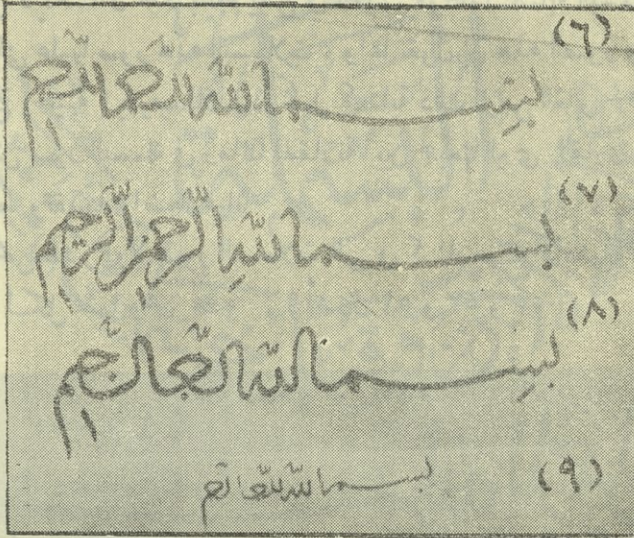 (٦) بسم الله الرحمن الرحيم
(٧) بسم الله الرحمن الرحيم
(٨) بسم الله الرحمن الرحيم
(٩) بسم الله